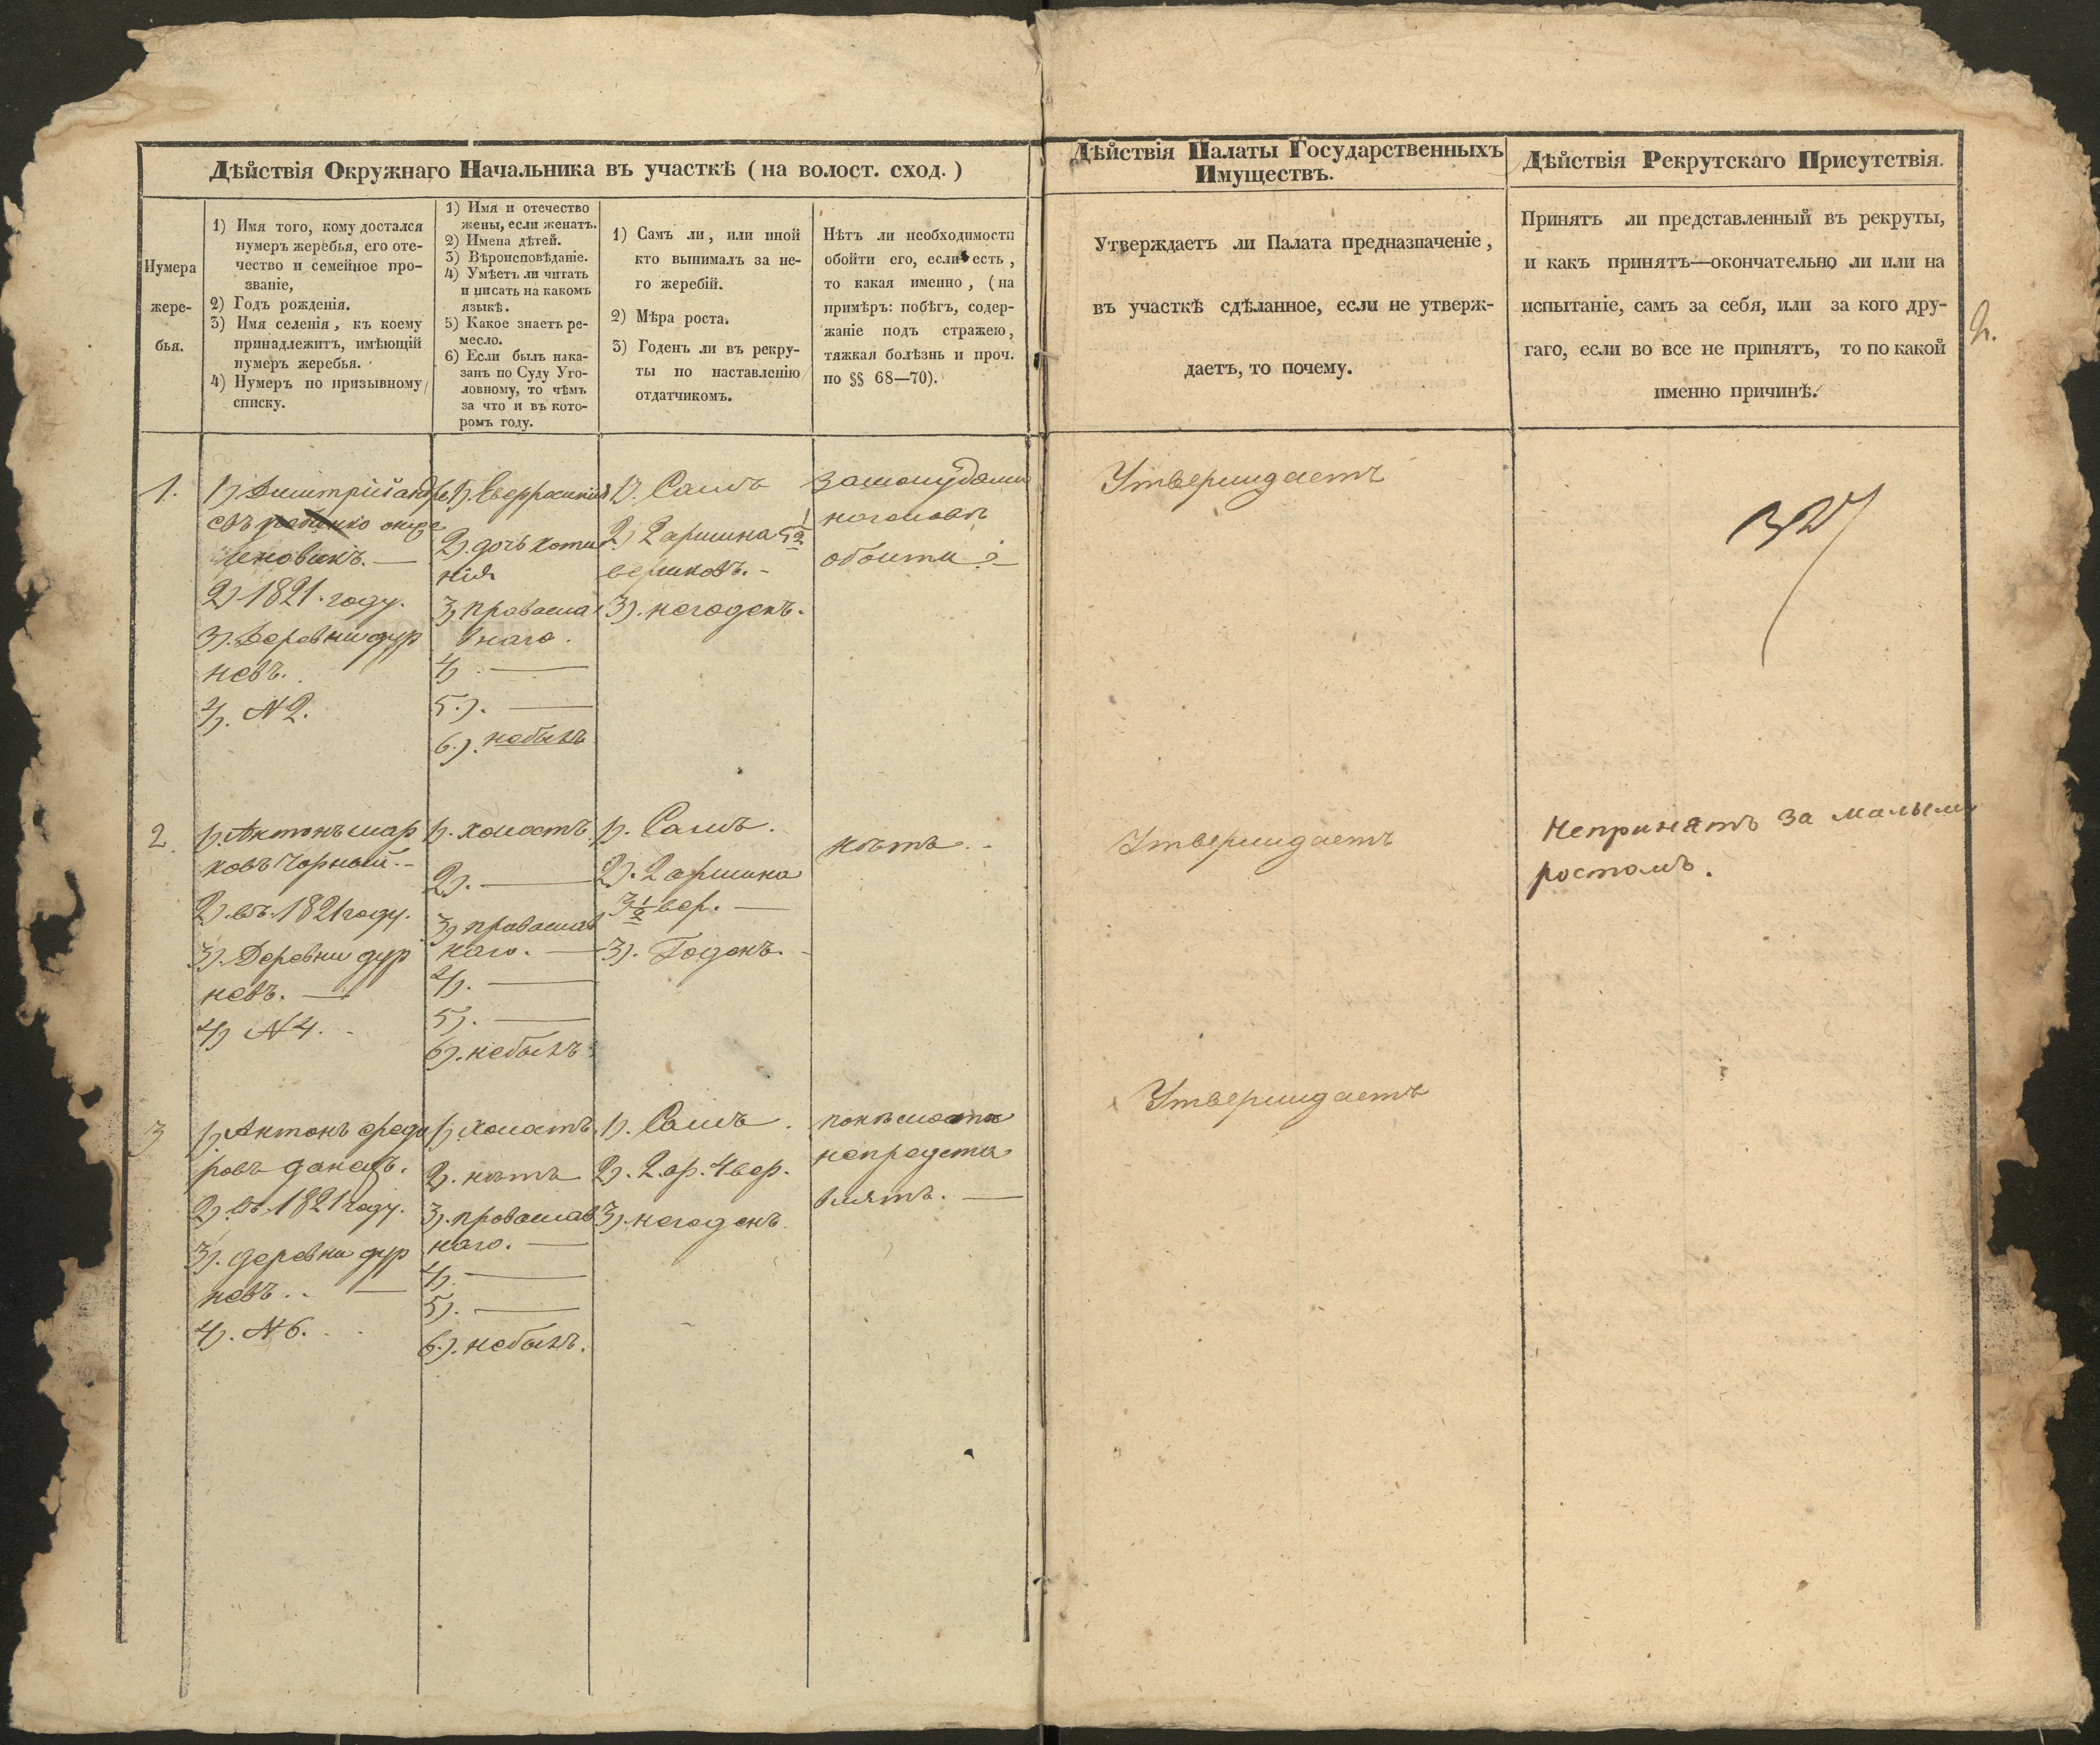 Дѣйствія Окружнаго Начальника въ участкѣ (на волост. сход.)
Нумера
жере-
бья.
1) Имя того, кому достался
нумеръ жеребья, его оте-
чество и семейное про-
званіе,
2) Годъ рожденія.
3) Имя селенія, къ коему
принадлежитъ, имѣющій
нумеръ жеребья.
4) Нумеръ по призывному
списку.
1) Имя и отечество
жены, если женатъ.
2) Имена дѣтей.
3) Вѣроисповѣданіе.
4) Умѣетъ ли читать
и писать на какомъ
языкѣ.
5) Какое знаетъ ре-
месло.
6) Если былъ нака-
занъ по Суду Уго-
ловному, то чѣмъ
за что и въ кото-
ромъ году.
1) Самъ ли, или иной
кто вынималъ за не-
го жеребій.
2) Мѣра роста.
3) Годенъ ли въ рекру-
ты по наставленію
отдатчикомъ.
Нѣтъ ли необходимости
обойти его, если есть,
то какая именно, (на
примѣръ: побѣгъ, содер-
жаніе подъ стражею,
тяжкая болѣзнь и проч.
по §§ 68—70).
Дѣйствія Палаты Государственныхъ
Имуществъ.
Утверждаетъ ли Палата предназначеніе,
въ участкѣ сдѣланное, если не утверж-
даетъ, то почему.
Дѣйствія Рекрутскаго Присутствія.
Принятъ ли представленный въ рекруты,
и какъ принятъ—окончательно ли или на
испытаніе, самъ за себя, или за кого дру-
гаго, если во все не принятъ, то по какой
именно причинѣ.
2.
1.
1). Димитрій андре
евъ
2). 1821. году.
3). Деревни дур
невъ.
4). N 2.
1).
2). дочь
3). Православ
наго.
4). —
5.). —
6.). небылъ
1). Самъ
2) 2 аршина 5 1/2
вершковъ. -
3). негоденъ.
обоити
Утверждаетъ
2.
1). Антонъ мар
ковъ Чорный. -
2). въ 1821 году.
3). Деревни дур
невъ. —
4) N 4.
1). холостъ
2). —
3) православ
наго. —
4). —
5). —
6). небылъ
1). Самъ.
2). 2 аршина
3 1/2 вер. —
3). Годенъ. -
нѣтъ. -
Утверждаетъ
Непринятъ за малымъ
ростомъ.
3
1). Антонъ федо
ровъ
2). въ 1821 году.
3). деревни дур
невъ. . —
4). N 6.
1). холостъ.
2). нѣтъ
3). православ
наго. —
4). —
5). —
6.). небылъ.
1). Самъ.
2). 2. ар. 4 вер.
3). негоденъ.
непредста
влятъ. —
Утверждаетъ